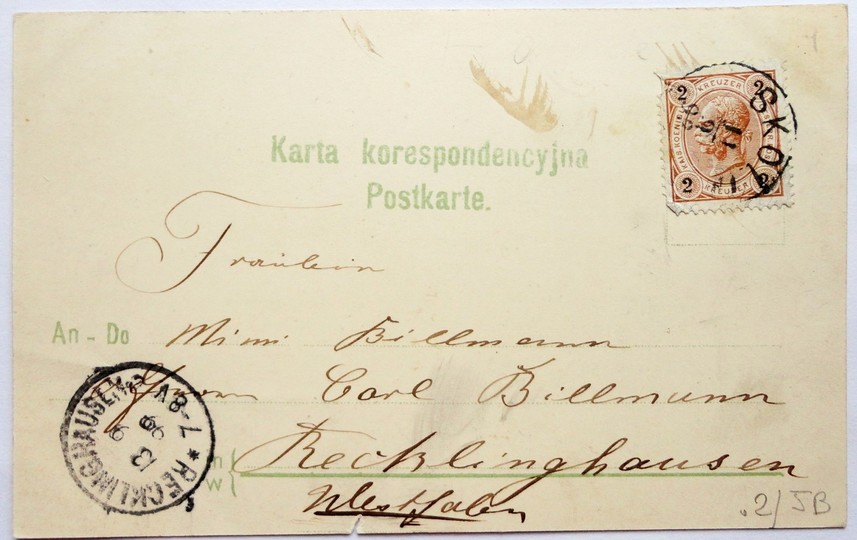 Karta korespondencyjna
Postkarte.
2 KREUZER 2
2 KREUZER 2
SKO
Fräulein
An - Do Mimi Billmann
Carl Billmann
n Recklinghausen
w
Westfalen
* RECKLINGHAUSEN
7-8V
13
9
99
.2/JB